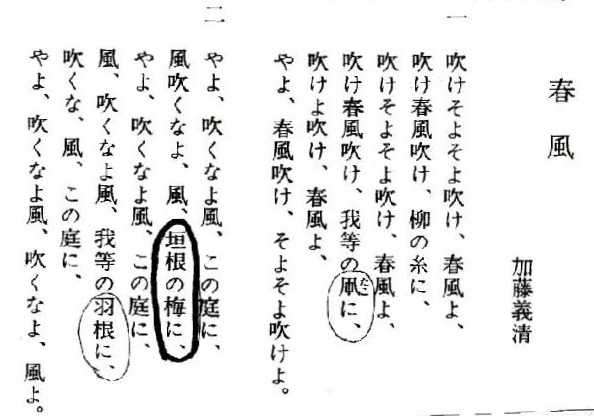 春風
加藤義清
一
吹けそよそよ吹け、春風よ、
吹け春風吹け、柳の糸に、
吹けそよそよ吹け、春風よ、
吹け春風吹け、我等の凧に、
たこ
吹けよ吹け、春風よ、
やよ、春風吹け、そよそよ吹けよ。
二
やよ、吹くなよ風、この庭に、
風吹くなよ、風、垣根の梅に、
やよ、吹くなよ風、この庭に、
風、吹くなよ風、我等の羽根に、
吹くな、風、この庭に、
やよ、吹くなよ風、吹くなよ、風よ。